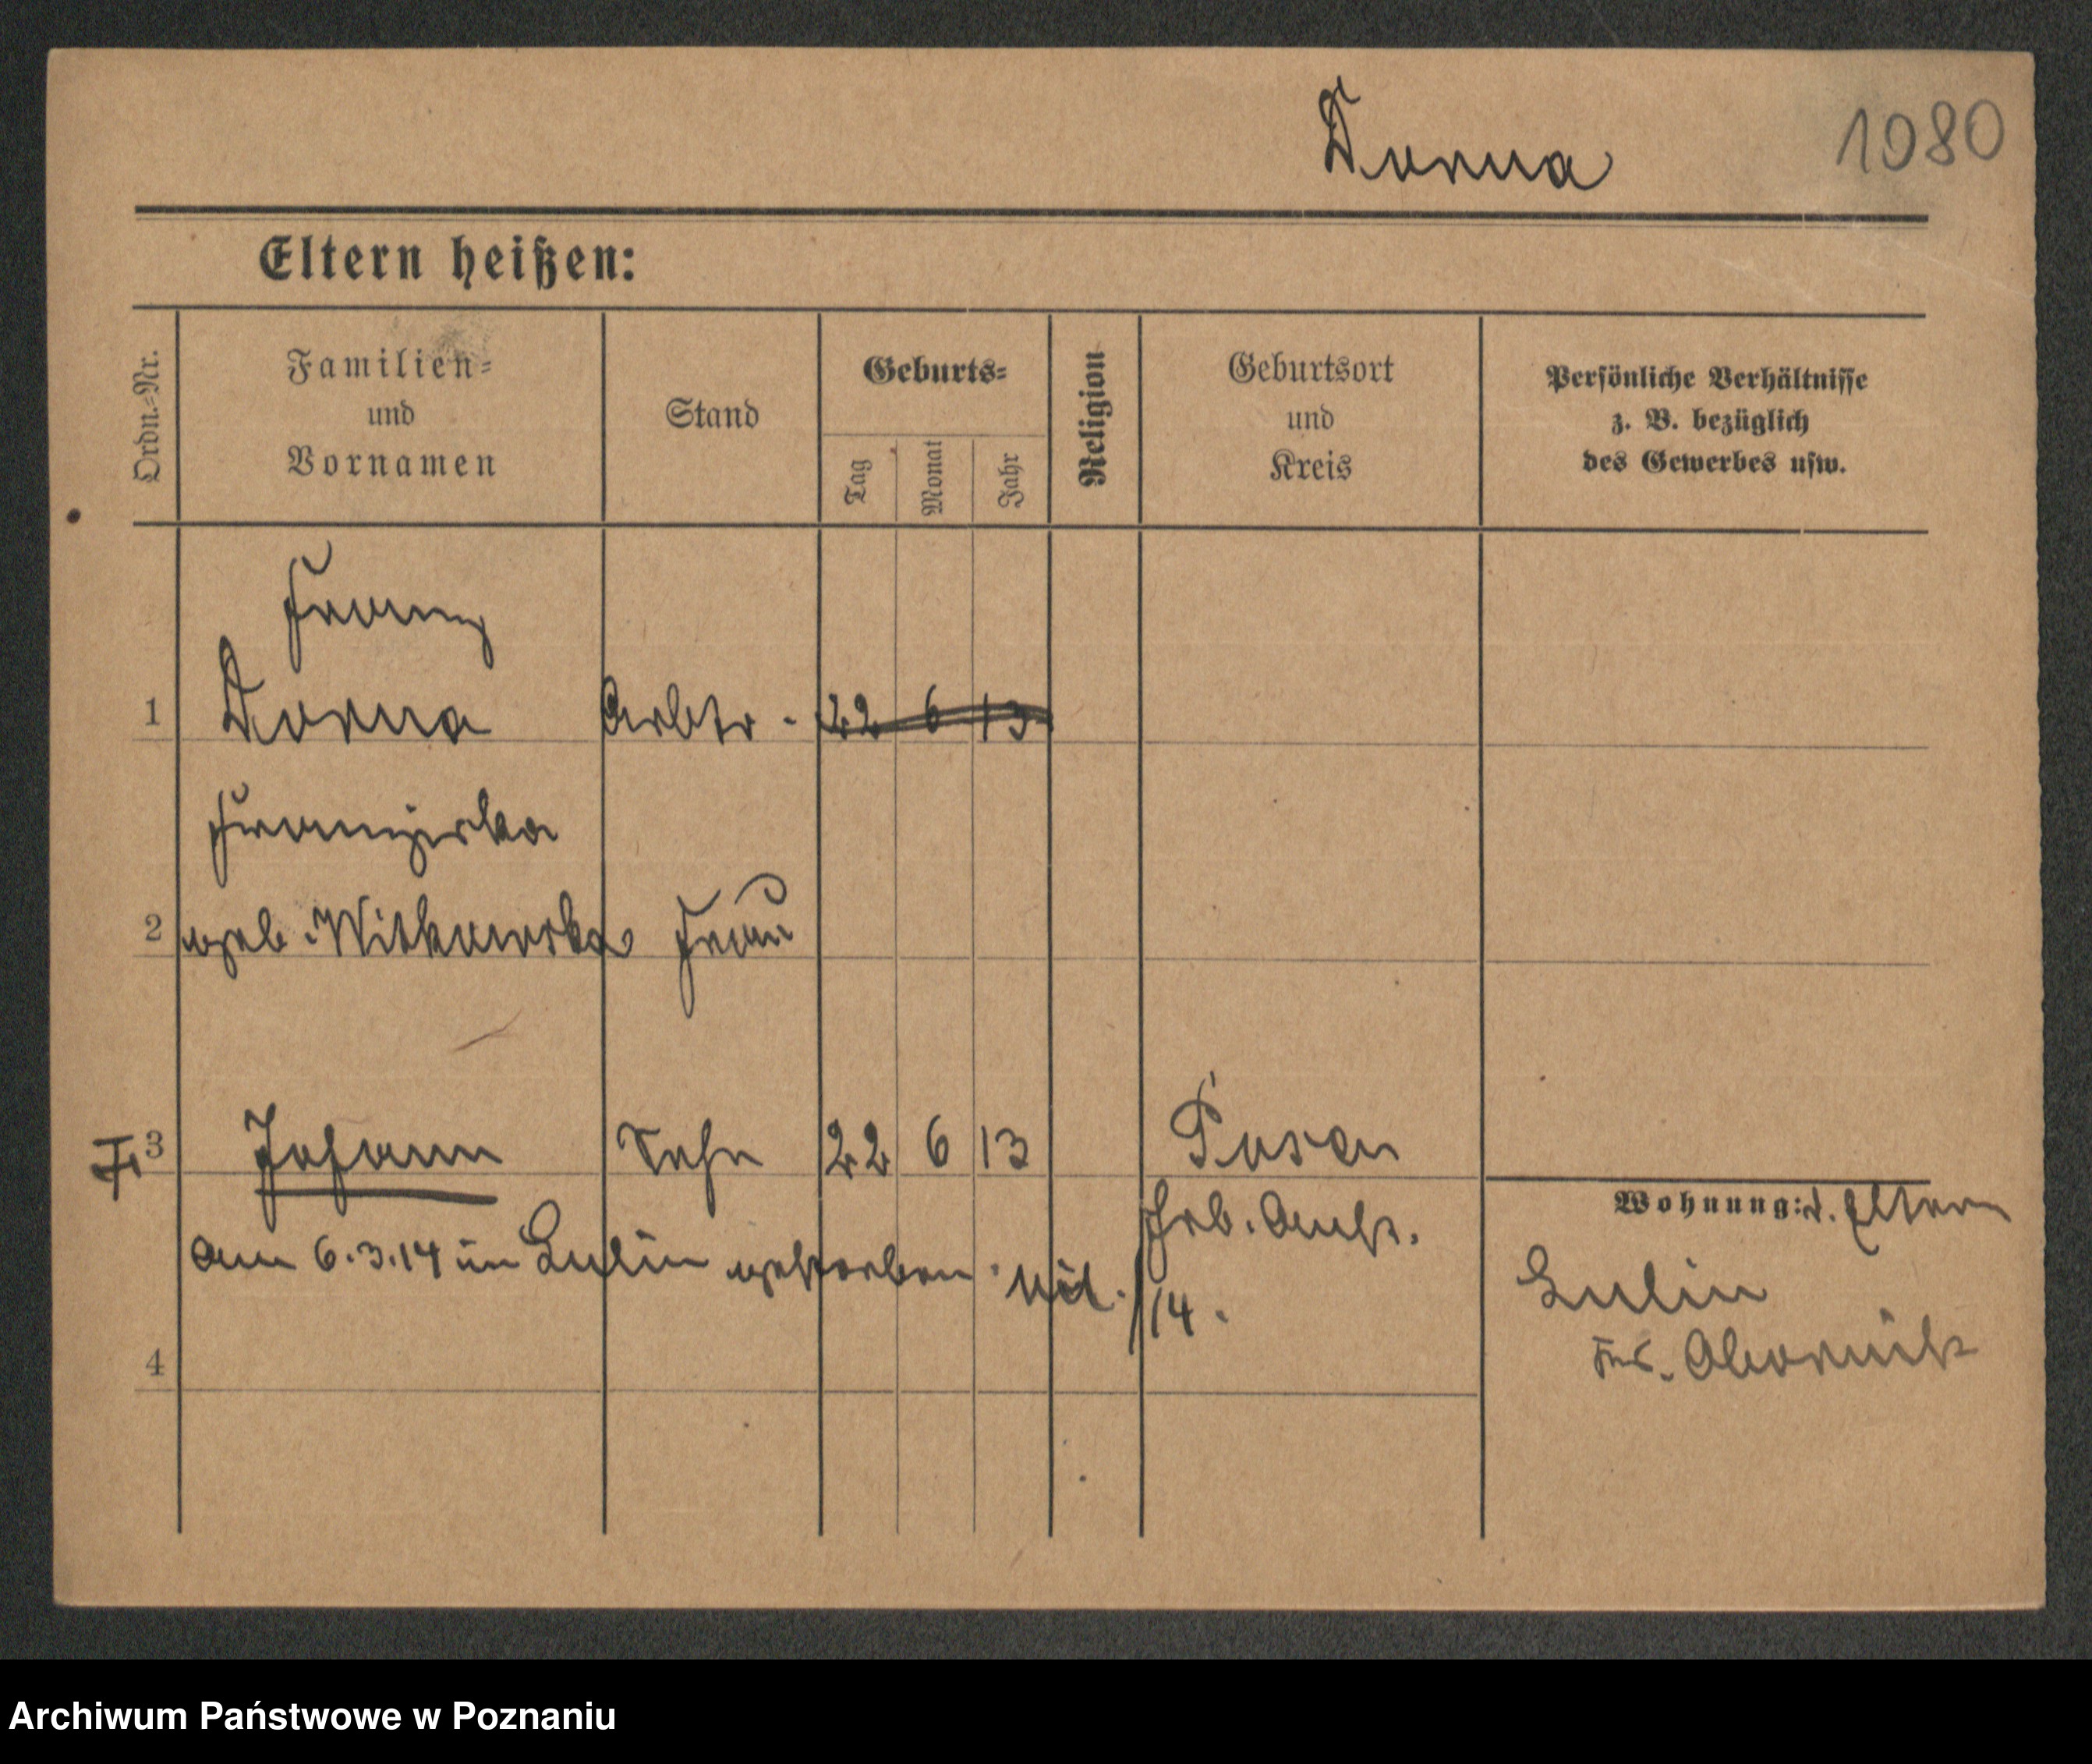 Dorna 1080
Eltern heißen:
Ordn.-Nr. Familien- und Vornamen Stand Geburts- Tag Monat Jahr Religion Geburtsort und Kreis Persönliche Verhältnisse z. B. bezüglich des Gewerbes usw.
Franz
1 Dorna Arbtr. 22 6 13
Franziska
2 geb. Witkowska Frau
3 Johann Sohn 22 6 13 Posen
Wohnung: d. Eltern
am 6.3.14 in Lulin gestorben. /14.
Lulin
Krs. Obornik
4
Archiwum Państwowe w Poznaniu